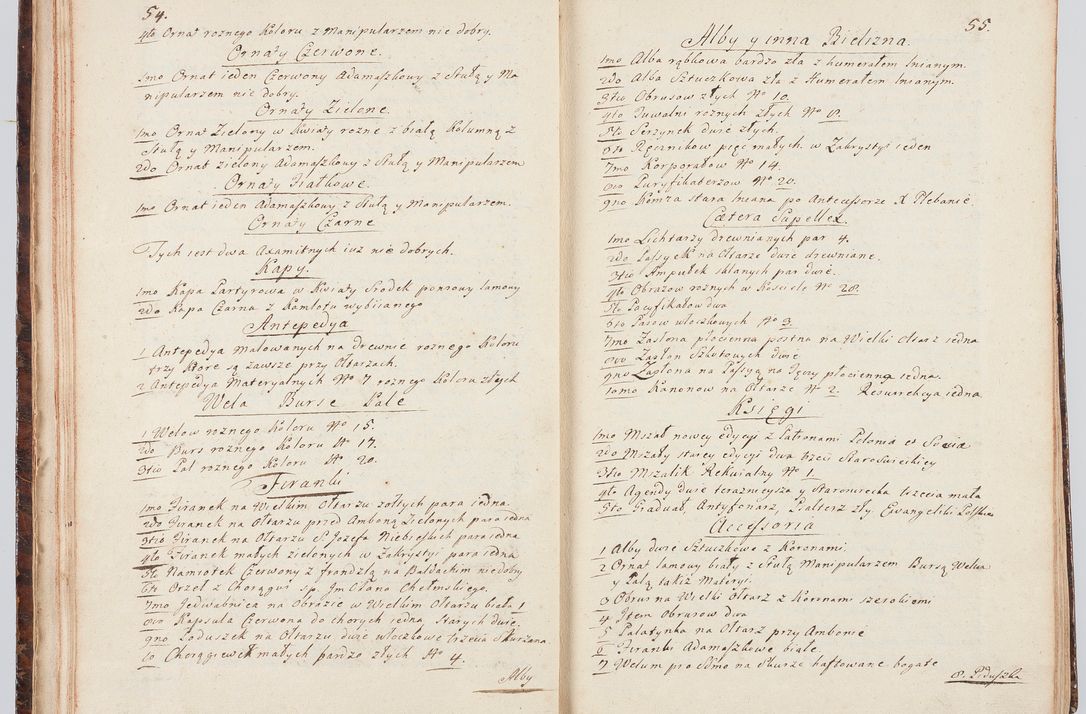 54.
4to Ornat roznego Koloru z Manipularzem nie dobry.
Ornaty Czerwone.
1mo Ornat ieden Czerwony Adamaszkowy z Stułą y Ma
nipularzem nie dobry.
Ornaty Zielone.
1mo Ornat Zielony w Kwiaty rozne z białą Kolumną z
Stułą y Manipularzem.
2do Ornat zielony Adamaszkowy z Stułą y Manipularzem
Ornaty Fiałkowe.
1mo Ornat ieden Adamaszkowy z Stułą y Manipularzem.
Ornaty Czarne
Tych iest dwa Axamitnych iuż nie dobrych.
Kapy.
1mo Kapa Partyrowa w Kwiaty Srodek ponsowy lamowy
2do Kapa Czarna z Kamlotu wybiianego
Antepedya
1 Antepedya Malowanych na drewnie roznego Koloru
trzy Ktore są zawsze przy Ołtarzach.
2 Antepedya Materyalnych No 7 roznego Koloru złych
Wela Burse Pale
1 Welow roznego Koloru No 15.
2do Burs roznego Koloru N 17.
3tio Pal roznego Koloru N. 20.
Firanki
1mo Firanek na Wielkim Ołtarzu zołtych para iedna.
2do Firanek na Ołtarzu przed Amboną Zielonych para iedna
3tio Firanek na Ołtarzu S. Jozefa Niebieskich para iedna
4to Firanek małych zielonych w Zakrystyi para iedna
5to Namiotek Czerwony z frandzlą na Baldachim niedobry
6to Orzeł z Chorągwi sp. Jm Pana Chełmskiego.
7mo Jedwabnica na Obrazie w Wielkim Ołtarzu biała 1
8vo Kapsuła Czerwona do chorych iedna Starych dwie.
9no Poduszek na Ołtarzu dwie włoczkowe trzecia Skurzana
10 Chorągiewek małych bardzo złych No 4.
Alby
55.
Alby y inna Bielizna.
1mo Alba rąbkowa bardzo zła z humerałem lnianym.
2do Alba Sztuczkowa zła z Humerałem lnianym.
3tio Obrusow złych No 10.
4to Tuwalni roznych złych No 8.
5to Serzynek dwie złych.
6to Ręcznikow pięć małych. w Zakrystyi ieden
7mo Korporałow No 14.
8vo Puryfikaterzow No 20.
9no Komza stara lniana po Antecessorze X Plebanie
Cætera Supellex.
1mo Lichtarzy drewnianych par 4.
2do Passyiek na Ołtarze dwie drewniane.
3tio Ampułek sklanych par dwie.
4to Obrazow roznych w Kosciele No 28.
5to Pacyfikałow dwa
6to Pasow włoczkowych No 3
7mo Zasłona płocienna postna na Wielki Ołtarz iedna
8vo Zasłon Szkutowych dwie
9no Zasłona na Passyą na Tęczy płocienna iedna.
10mo Kanonow na Ołtarze No 2. Resurekcya iedna
Księgi
1mo Mszał nowey edycyi z Patronami Polonia et Svecia
2do Mszały starey edycyi dwa trzeci Staroswiecki
3tio Mszalik Rekwialny No 1
4to Agendy dwie teraznieysza y Starowiecka trzecia mała
5to Graduał, Antyfonarz, Psałterz zły. Ewangeliki Polskie
Accessoria
1 Alby dwie Sztuczkowe z Koronami.
2 Ornat lamowy biały z Stułą Manipularzem Bursą Welum
y Palą takiż Materyi
3 Obrus na Wielki Ołtarz z Koronami szerokiemi
4 Item Obrusow dwa
5 Palatynka na Ołtarz przy Ambonie
6 Firanki Adamaszkowe białe
7 Welum pro Ssmo na Skurze haftowane bogate
8. Poduszka